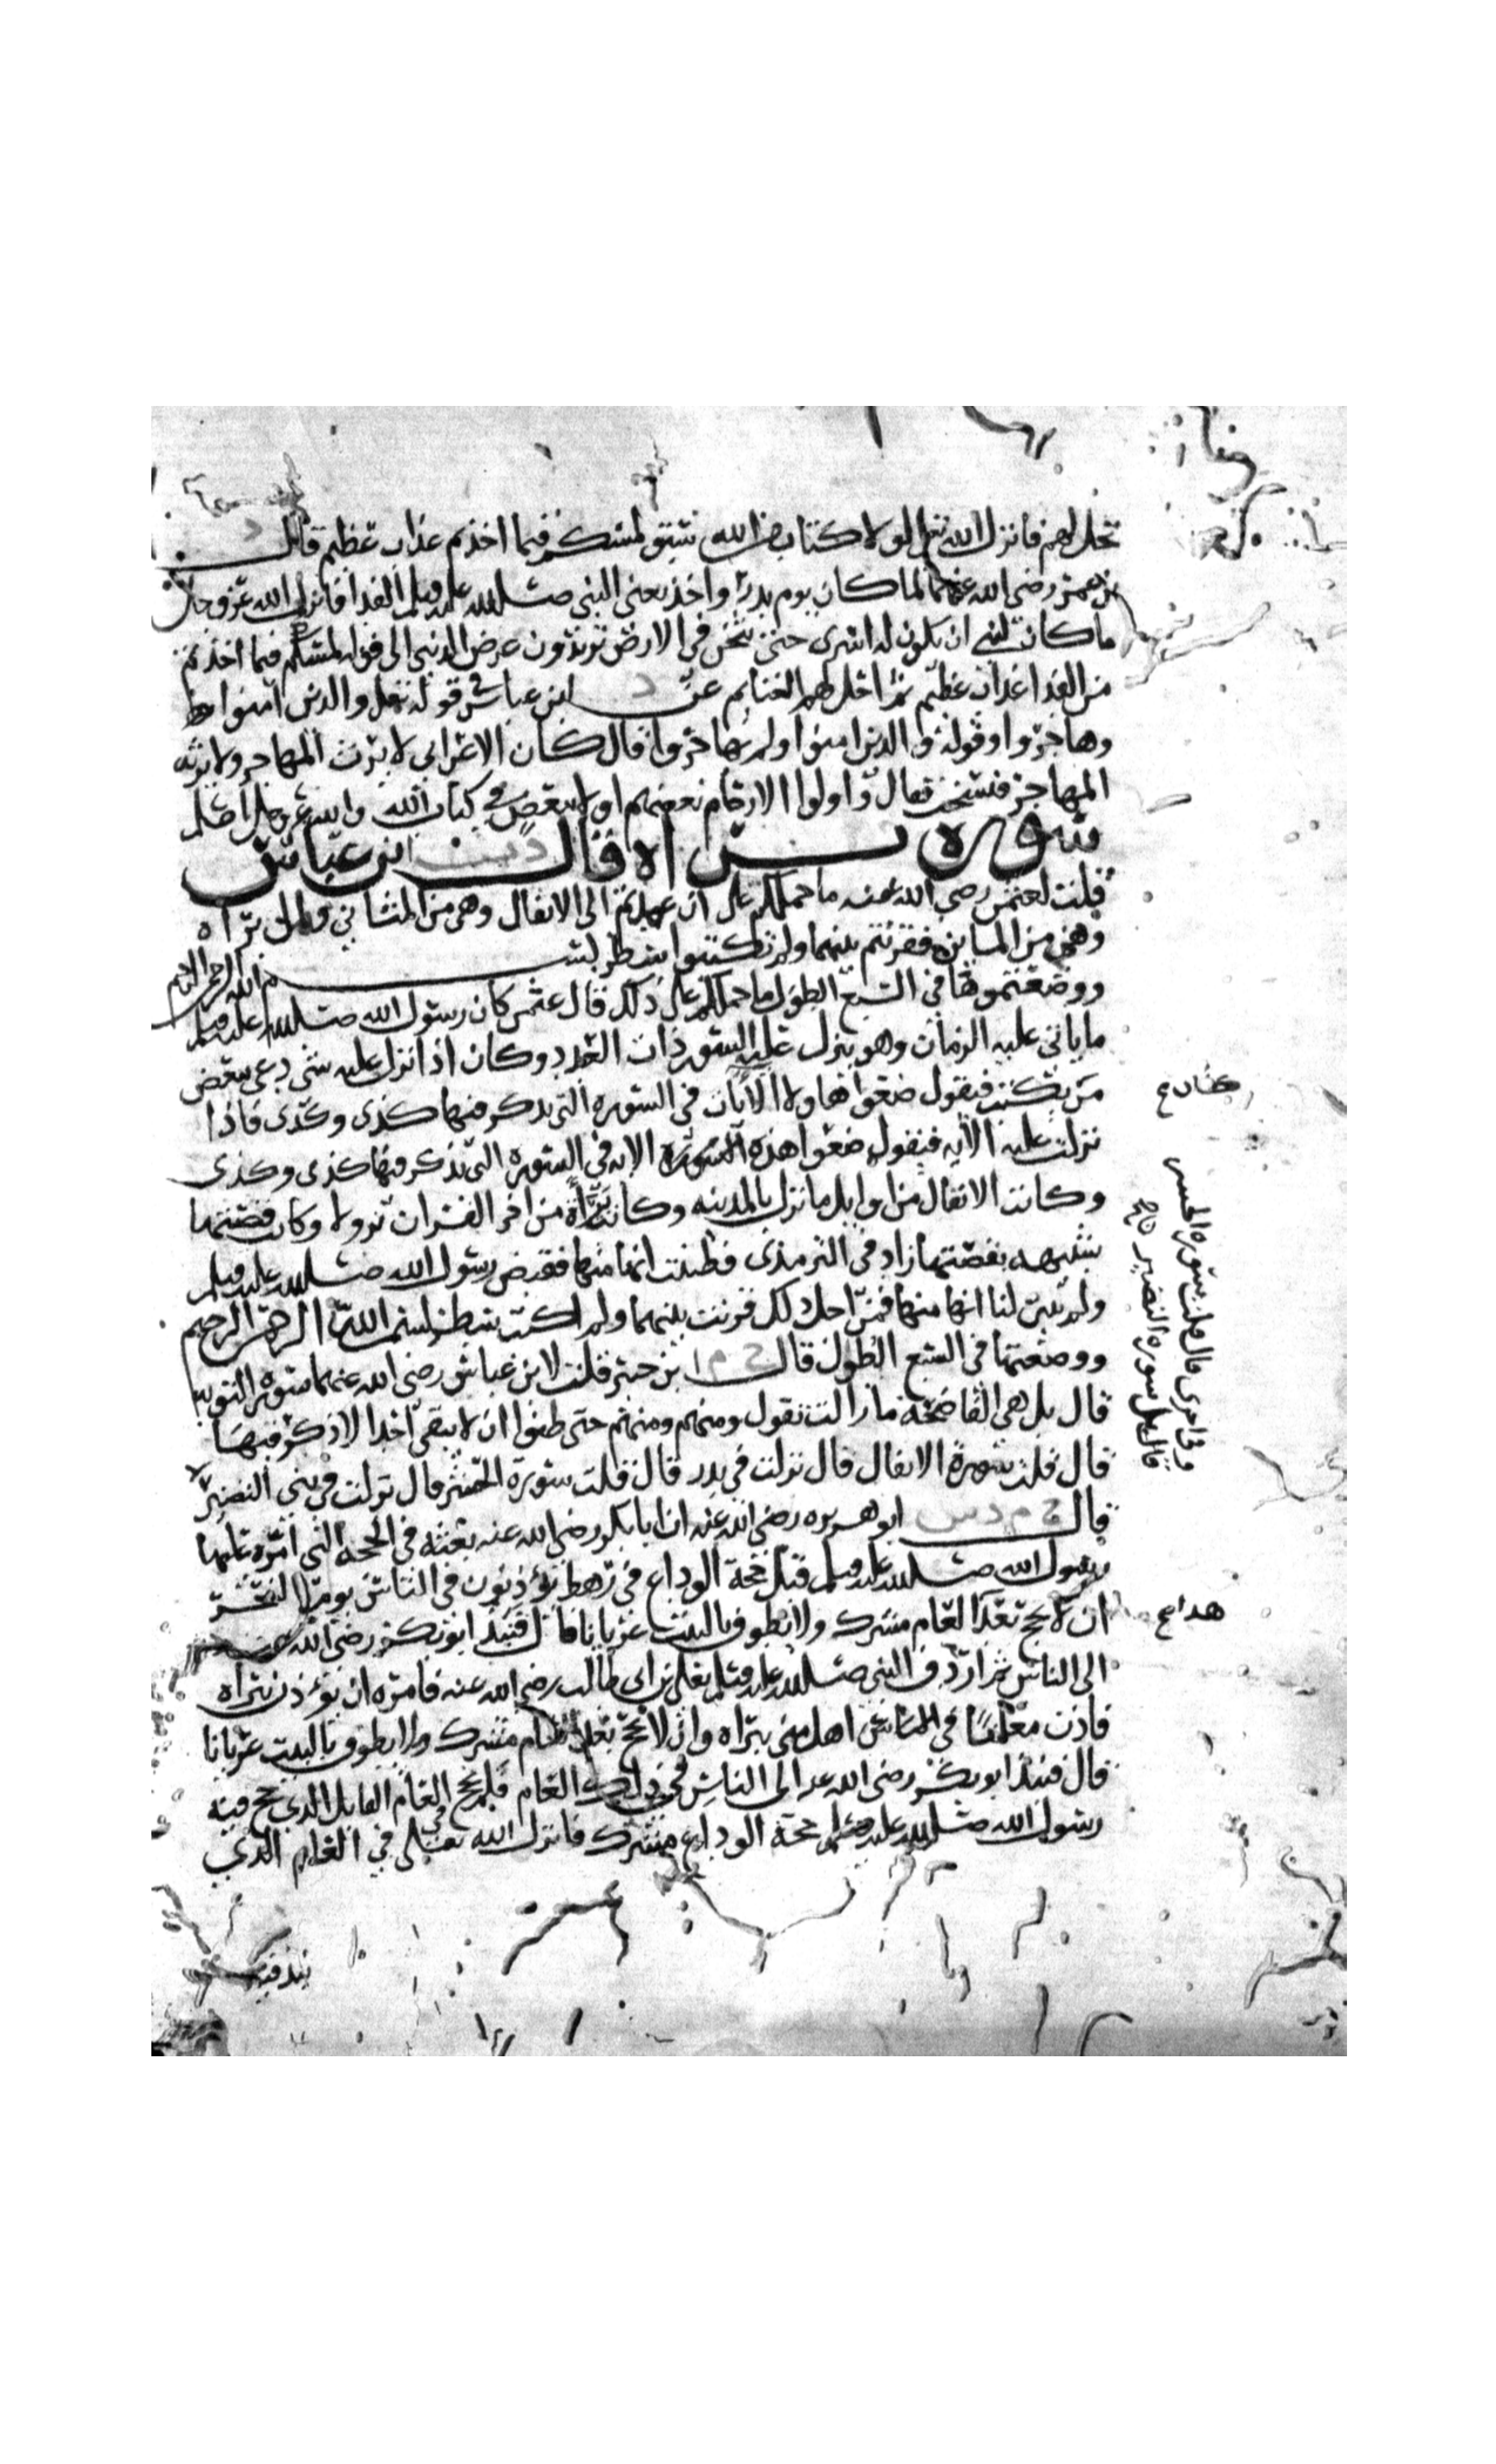 تحل لهم فانزل الله تعالى لولا كتاب من الله سبق لمسكم فيما اخذتم عذاب عظيم قال د
بن عمر رضي الله عنهما لما كان يوم بدر واخذ يعني النبي صلى الله عليه وسلم الفدا فانزل الله عز وجل
ما كان لنبي ان يكون له اسرى حتى يثخن في الارض تريدون عرض الدنيا الى قوله لمسكم فيما اخذتم
من الفدا عذاب عظيم ثم احل لهم الغنايم عن د ابن عباس في قوله تعالى والذين آمنوا
وهاجروا وقوله والذين امنوا ولم يهاجروا قال كان الاعرابي لا يرث المهاجر ولا يرثه
المهاجر فنسخت فقال واولوا الارحام بعضهم اولى ببعض في كتاب الله والله عز وجل اعلم
سورة براه قال د ت ابن عباس
قلت لعثمن رضي الله عنه ما حملكم على ان عمدتم الى الانفال وهي من المثاني والى براه
وهي من المايين فقرنتم بينهما ولم تكتبوا سطر بسم الله الرحمن الرحيم
ووضعتموها في السبع الطول ما حملكم على ذلك قال عثمن كان رسول الله صلى الله عليه وسلم
ما ياتي عليه الزمان وهو ينزل عليه السور ذات العدد وكان اذا نزل عليه شي دعى بعض
من يكتب فيقول ضعوا هاولا الآيات في السورة التي يذكر فيها كذى وكذى فاذا
نزلت عليه الآيه فيقول ضعوا هذه الايه في السورة التي يذكر فيها كذى وكذى
وكانت الانفال من اوايل ما نزل بالمدينه وكانت براة من اخر القران نزولا وكانت قصتها
شبيهه بقصتها زاد في الترمذي فظننت انها منها فقبض رسول الله صلى الله عليه وسلم
ولم يبين لنا انها منها فمن اجل ذلك قرنت بينهما ولم اكتب سطر بسم الله الرحمن الرحيم
ووضعتها في السبع الطول قال خ م ا بن جبير قلت لابن عباس رضي الله عنهما سورة التوبه
قال بل هي الفاضحة ما زالت تقول ومنهم ومنهم حتى ظنوا ان لا يبقى احدا الا ذكر فيها
قال قلت سورة الانفال قال نزلت في بدر قال قلت سورة الحشر قال نزلت في بني النضير
قال خ م د س ابو هريره رضي الله عنه ان ابا بكر رضي الله عنه بعثه في الحجه التي امره عليها
رسول الله صلى الله عليه وسلم قبل حجة الوداع في رهط يؤذنون في الناس يوم النحر
ان لا يحج بعد العام مشرك ولا يطوف بالبيت عريانا قال فنبذ ابو بكر رضي الله عنه
الى الناس ثم اردف النبي صلى الله عليه وسلم بعلي بن ابي طالب رضي الله عنه فامره ان يؤذن ببراه
فاذن معنا في اهل منى ببراه وان لا يحج بعد العام مشرك ولا يطوف بالبيت عريانا
قال فنبذ ابو بكر رضي الله عنه الى الناس في ذلك العام فلم يحج العام القابل الذي حج فيه
رسول الله صلى الله عليه وسلم حجة الوداع مشرك فانزل الله تعالى في العام الذي
نبذ فيه
وفي اخرى قال قلت سورة الحشر
قال بل سورة النضير